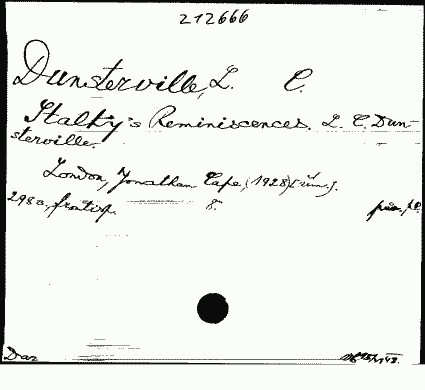 212666
Dunsterville, L. C.
Stalky's Reminiscences. L. C. Dun-
sterville.
London, Jonathan Cape, (1928)
298 s., frontisp. 8.
Dar